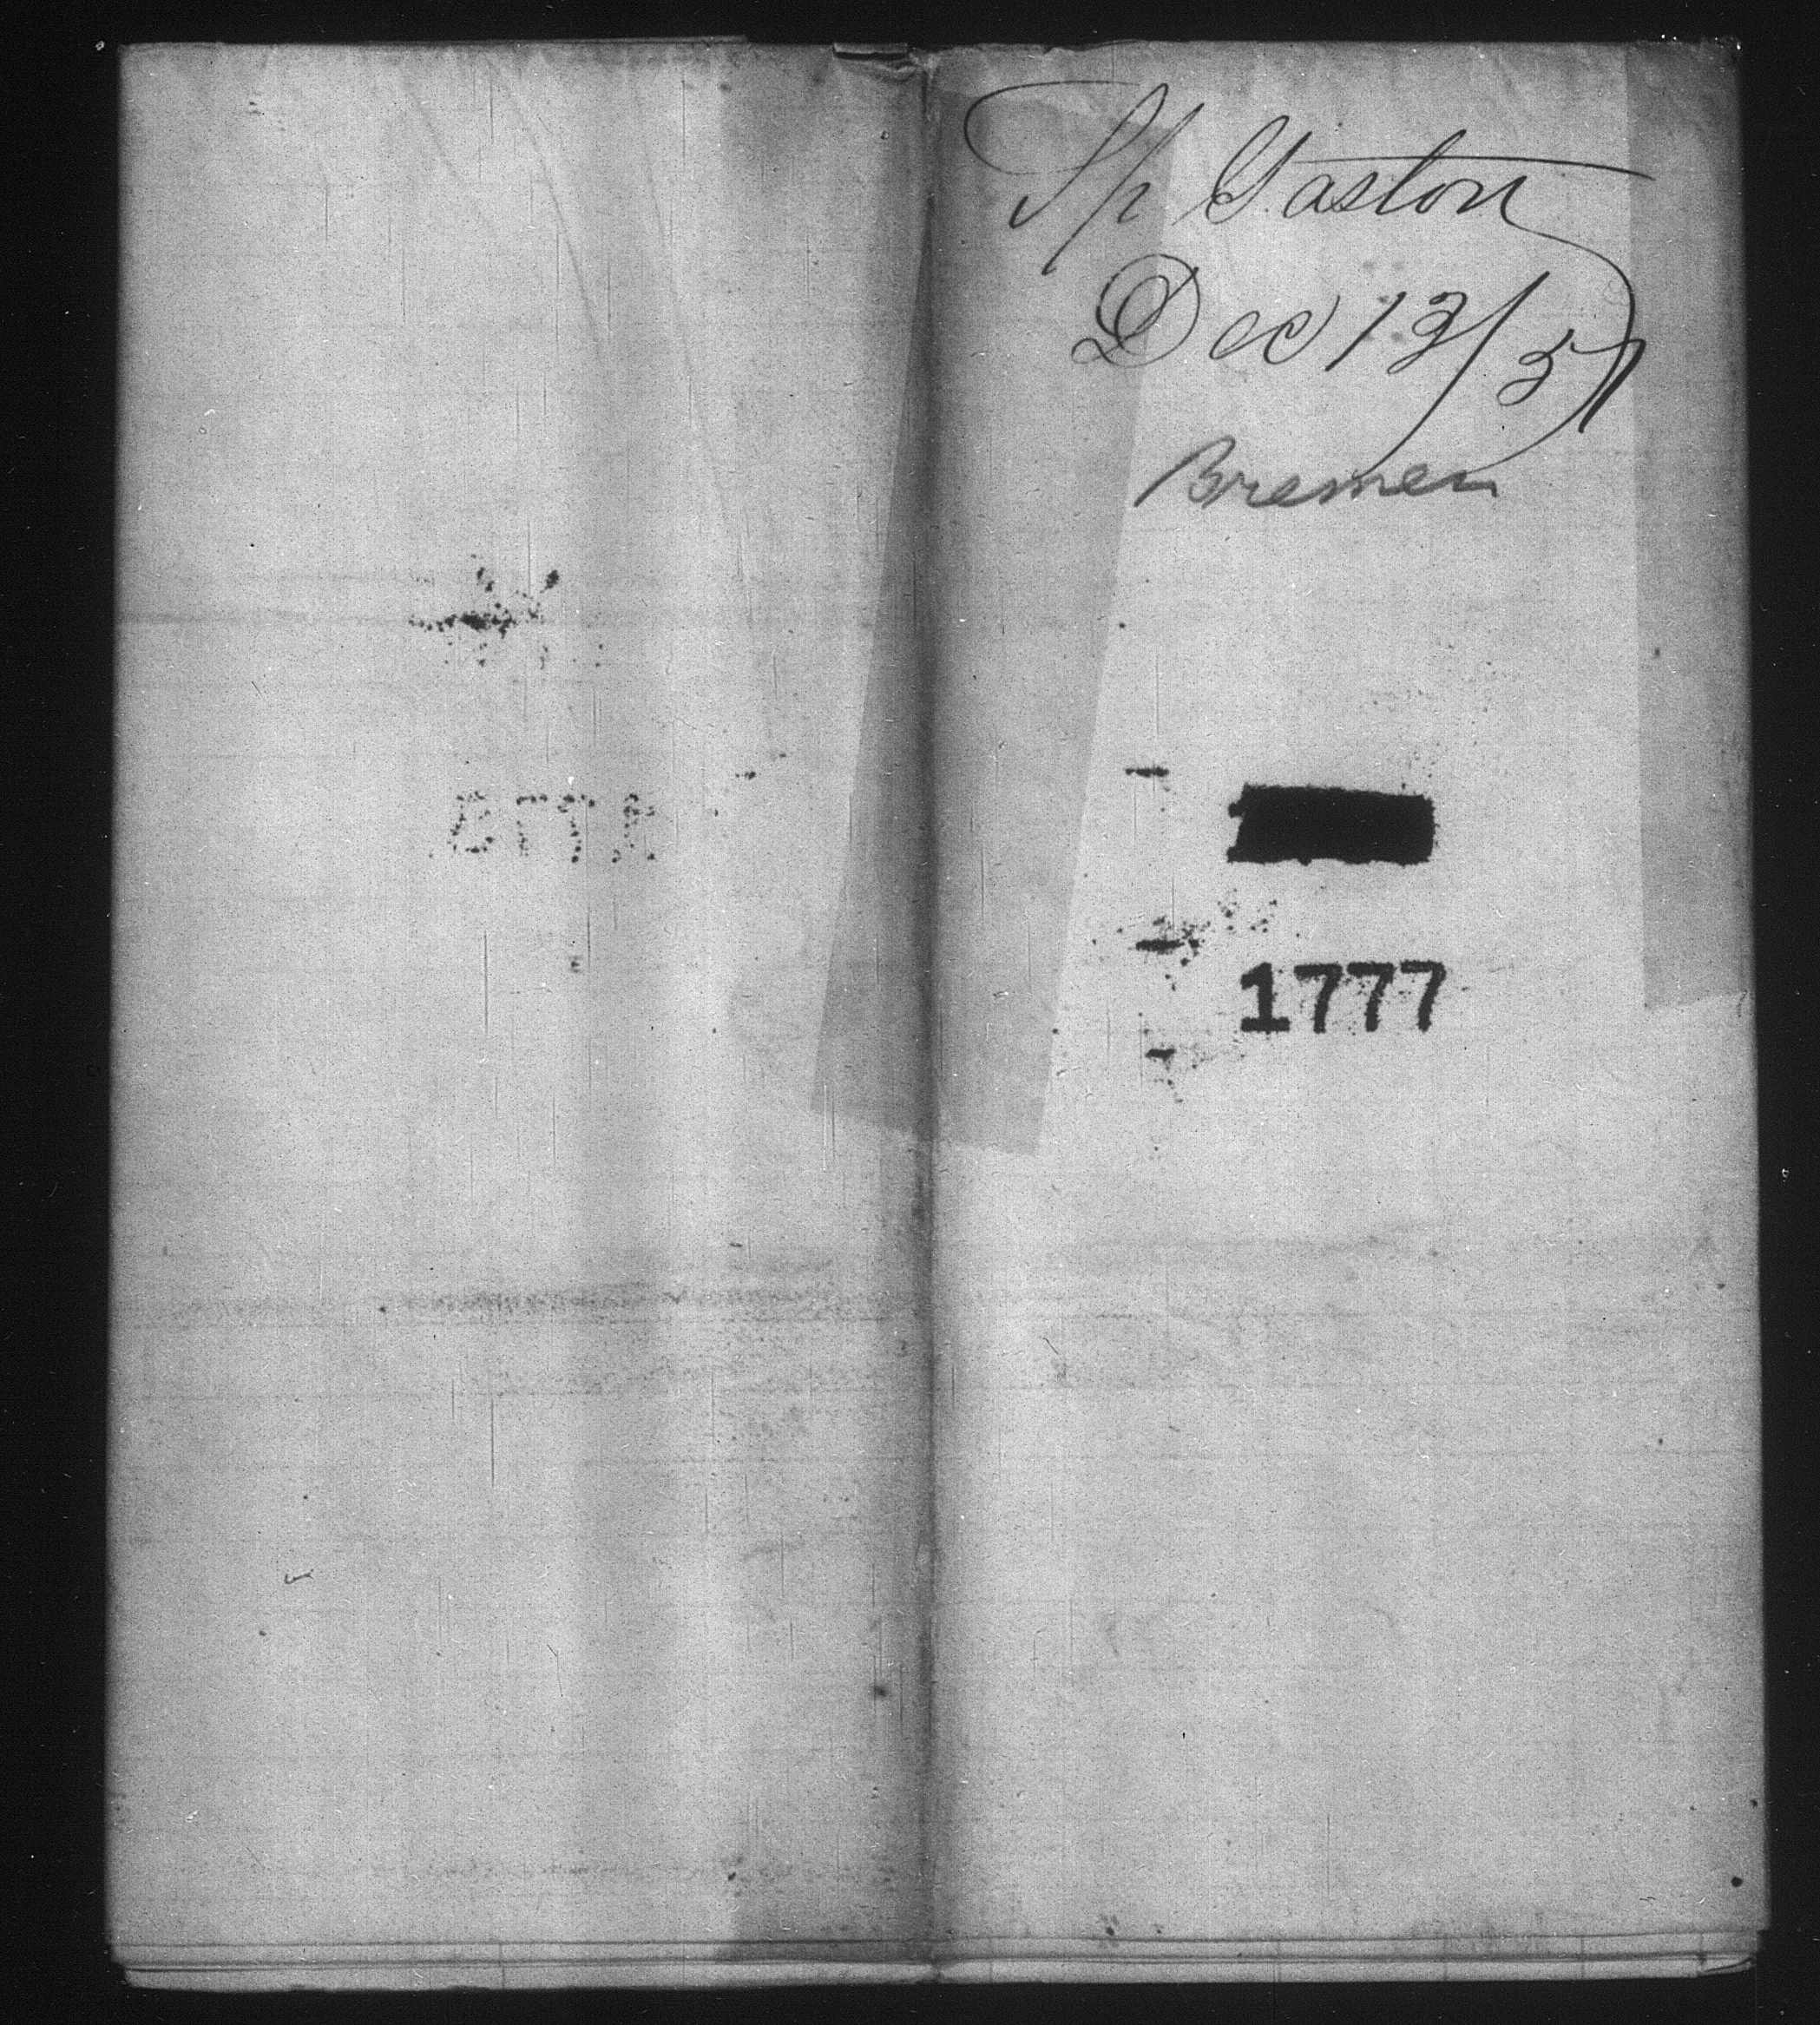 Sp Gaston
Dec 13/57
Bremen
1777